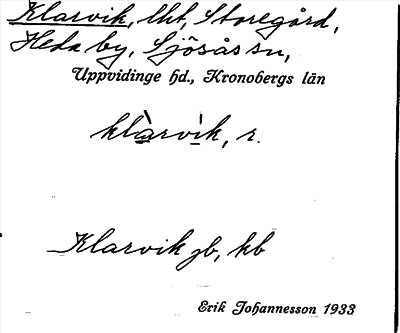 Klarvik, lht, Storegård,
Hedaby, Sjösås sn,
Uppvidinge hd., Kronobergs län
klàrvìk, r.
Klarvik gb, kb
Erik Johannesson 1933